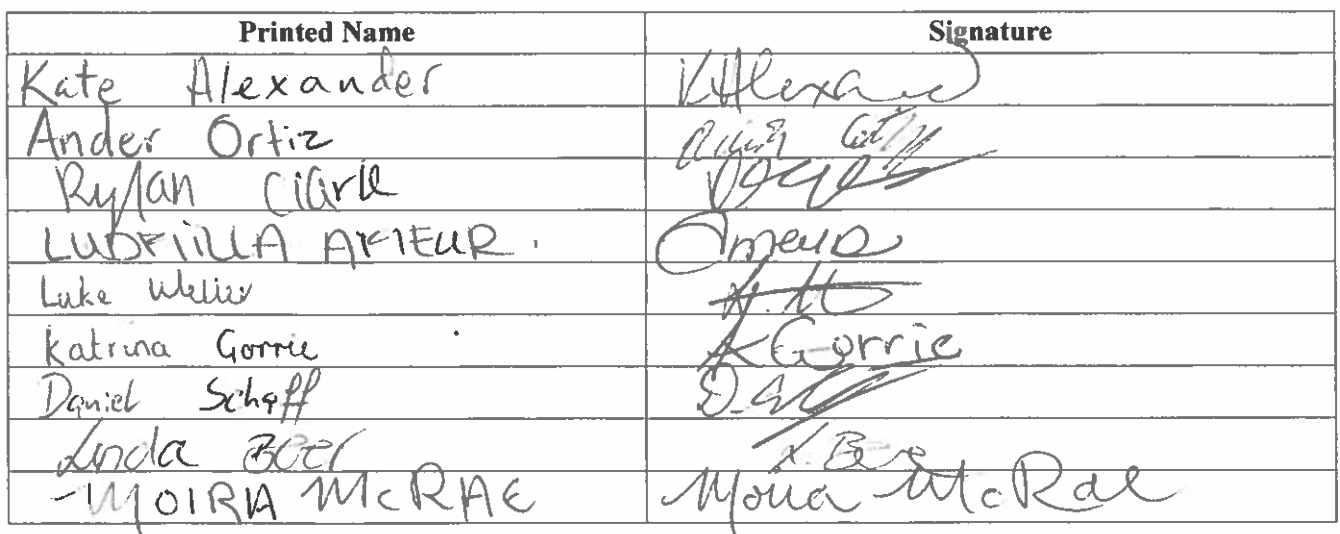 Printed Name Signature
Kate Alexander KAlexand
Ander Ortiz
Rylan Clark
LUDMILLA AMEUR. Ameur
Luke
Katrina Gorrie K Gorrie
Daniel Schaff
Linda Beer L. Beer
MOIRA McRAE Moira McRae